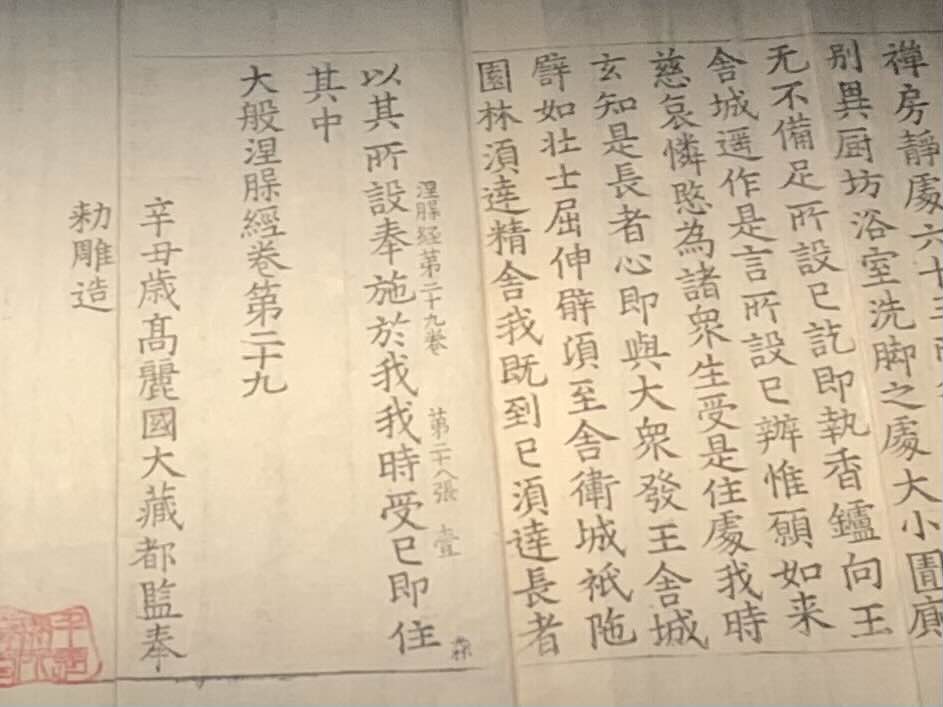 禪房靜處六十三所
別異厨坊浴室洗脚之處大小圊廁
无不備足所設已訖即執香鑪向王
舍城遥作是言所設已辦惟願如来
慈哀憐愍為諸衆生受是住處我時
玄知是長者心即與大衆發王舍城
譬如壯士屈伸臂項至舍衛城祇陁
園林須達精舍我既到已須達長者
涅槃經第二十九卷 第二十八張 壹
以其所設奉施於我我時受已即住
其中
大般涅槃經卷第二十九
辛丑歳高麗國大藏都監奉
勑雕造